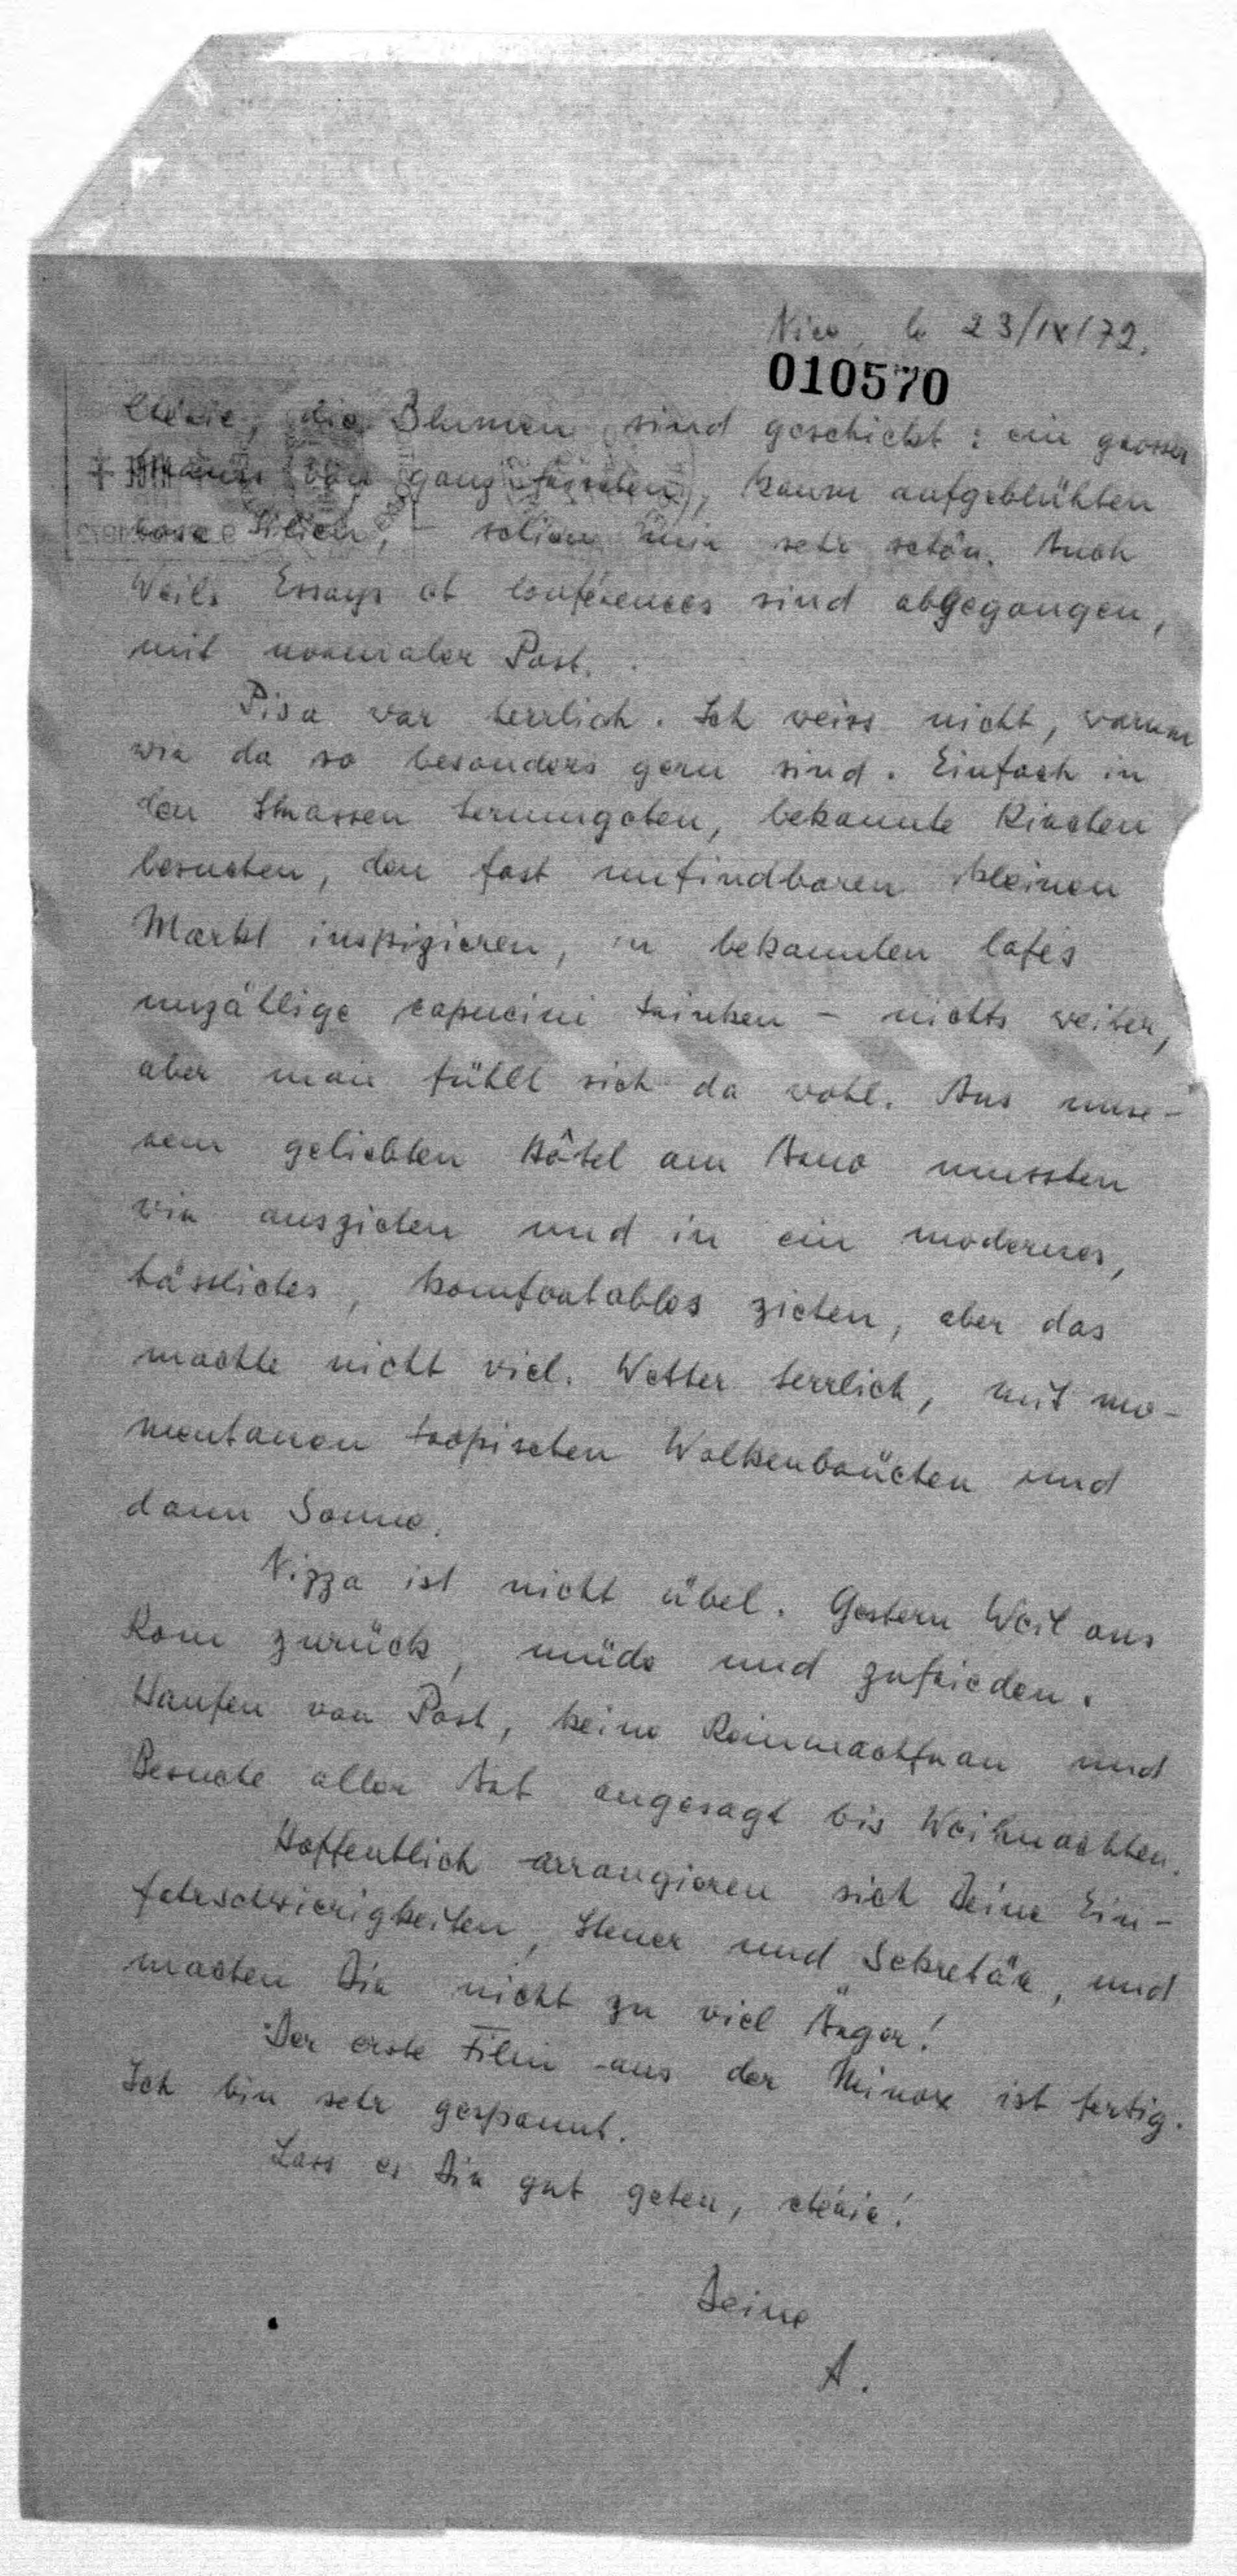 Nice, le 23/IX/72.
010570
Chérie, die Blumen sind geschickt: ein grosser
von ganz frischen, kaum aufgeblühten
rosa Lilien, – schien mir sehr schön. Auch
Weils Essays et Conférences sind abgegangen,
mit normaler Post.
Pisa war herrlich. Ich weiss nicht, warum
wir da so besonders gern sind. Einfach in
den Strassen herumgehen, bekannte Kirchen
besuchen, den fast unfindbaren kleinen
Markt inspizieren, in bekannten Cafés
unzählige capucini trinken – nichts weiter,
aber man fühlt sich da wohl. Aus unse-
rem geliebten Hôtel am Arno mussten
wir ausziehen und in ein modernes,
hässliches, komfortables ziehen, aber das
machte nicht viel. Wetter herrlich, mit mo-
mentanen tropischen Wolkenbrüchen und
dann Sonne.
Nizza ist nicht übel. Gestern Weil aus
Rom zurück, müde und zufrieden.
Haufen von Post, keine Reinmachfrau und
Besuche aller Art angesagt bis Weihnachten.
Hoffentlich arrangieren sich Deine Ein-
fuhrschwierigkeiten, Steuer und Sekretär, und
machen Dir nicht zu viel Ärger!
Der erste Film aus der Minox ist fertig.
Ich bin sehr gespannt.
Lass es Dir gut gehen, chérie!
Deine
A.